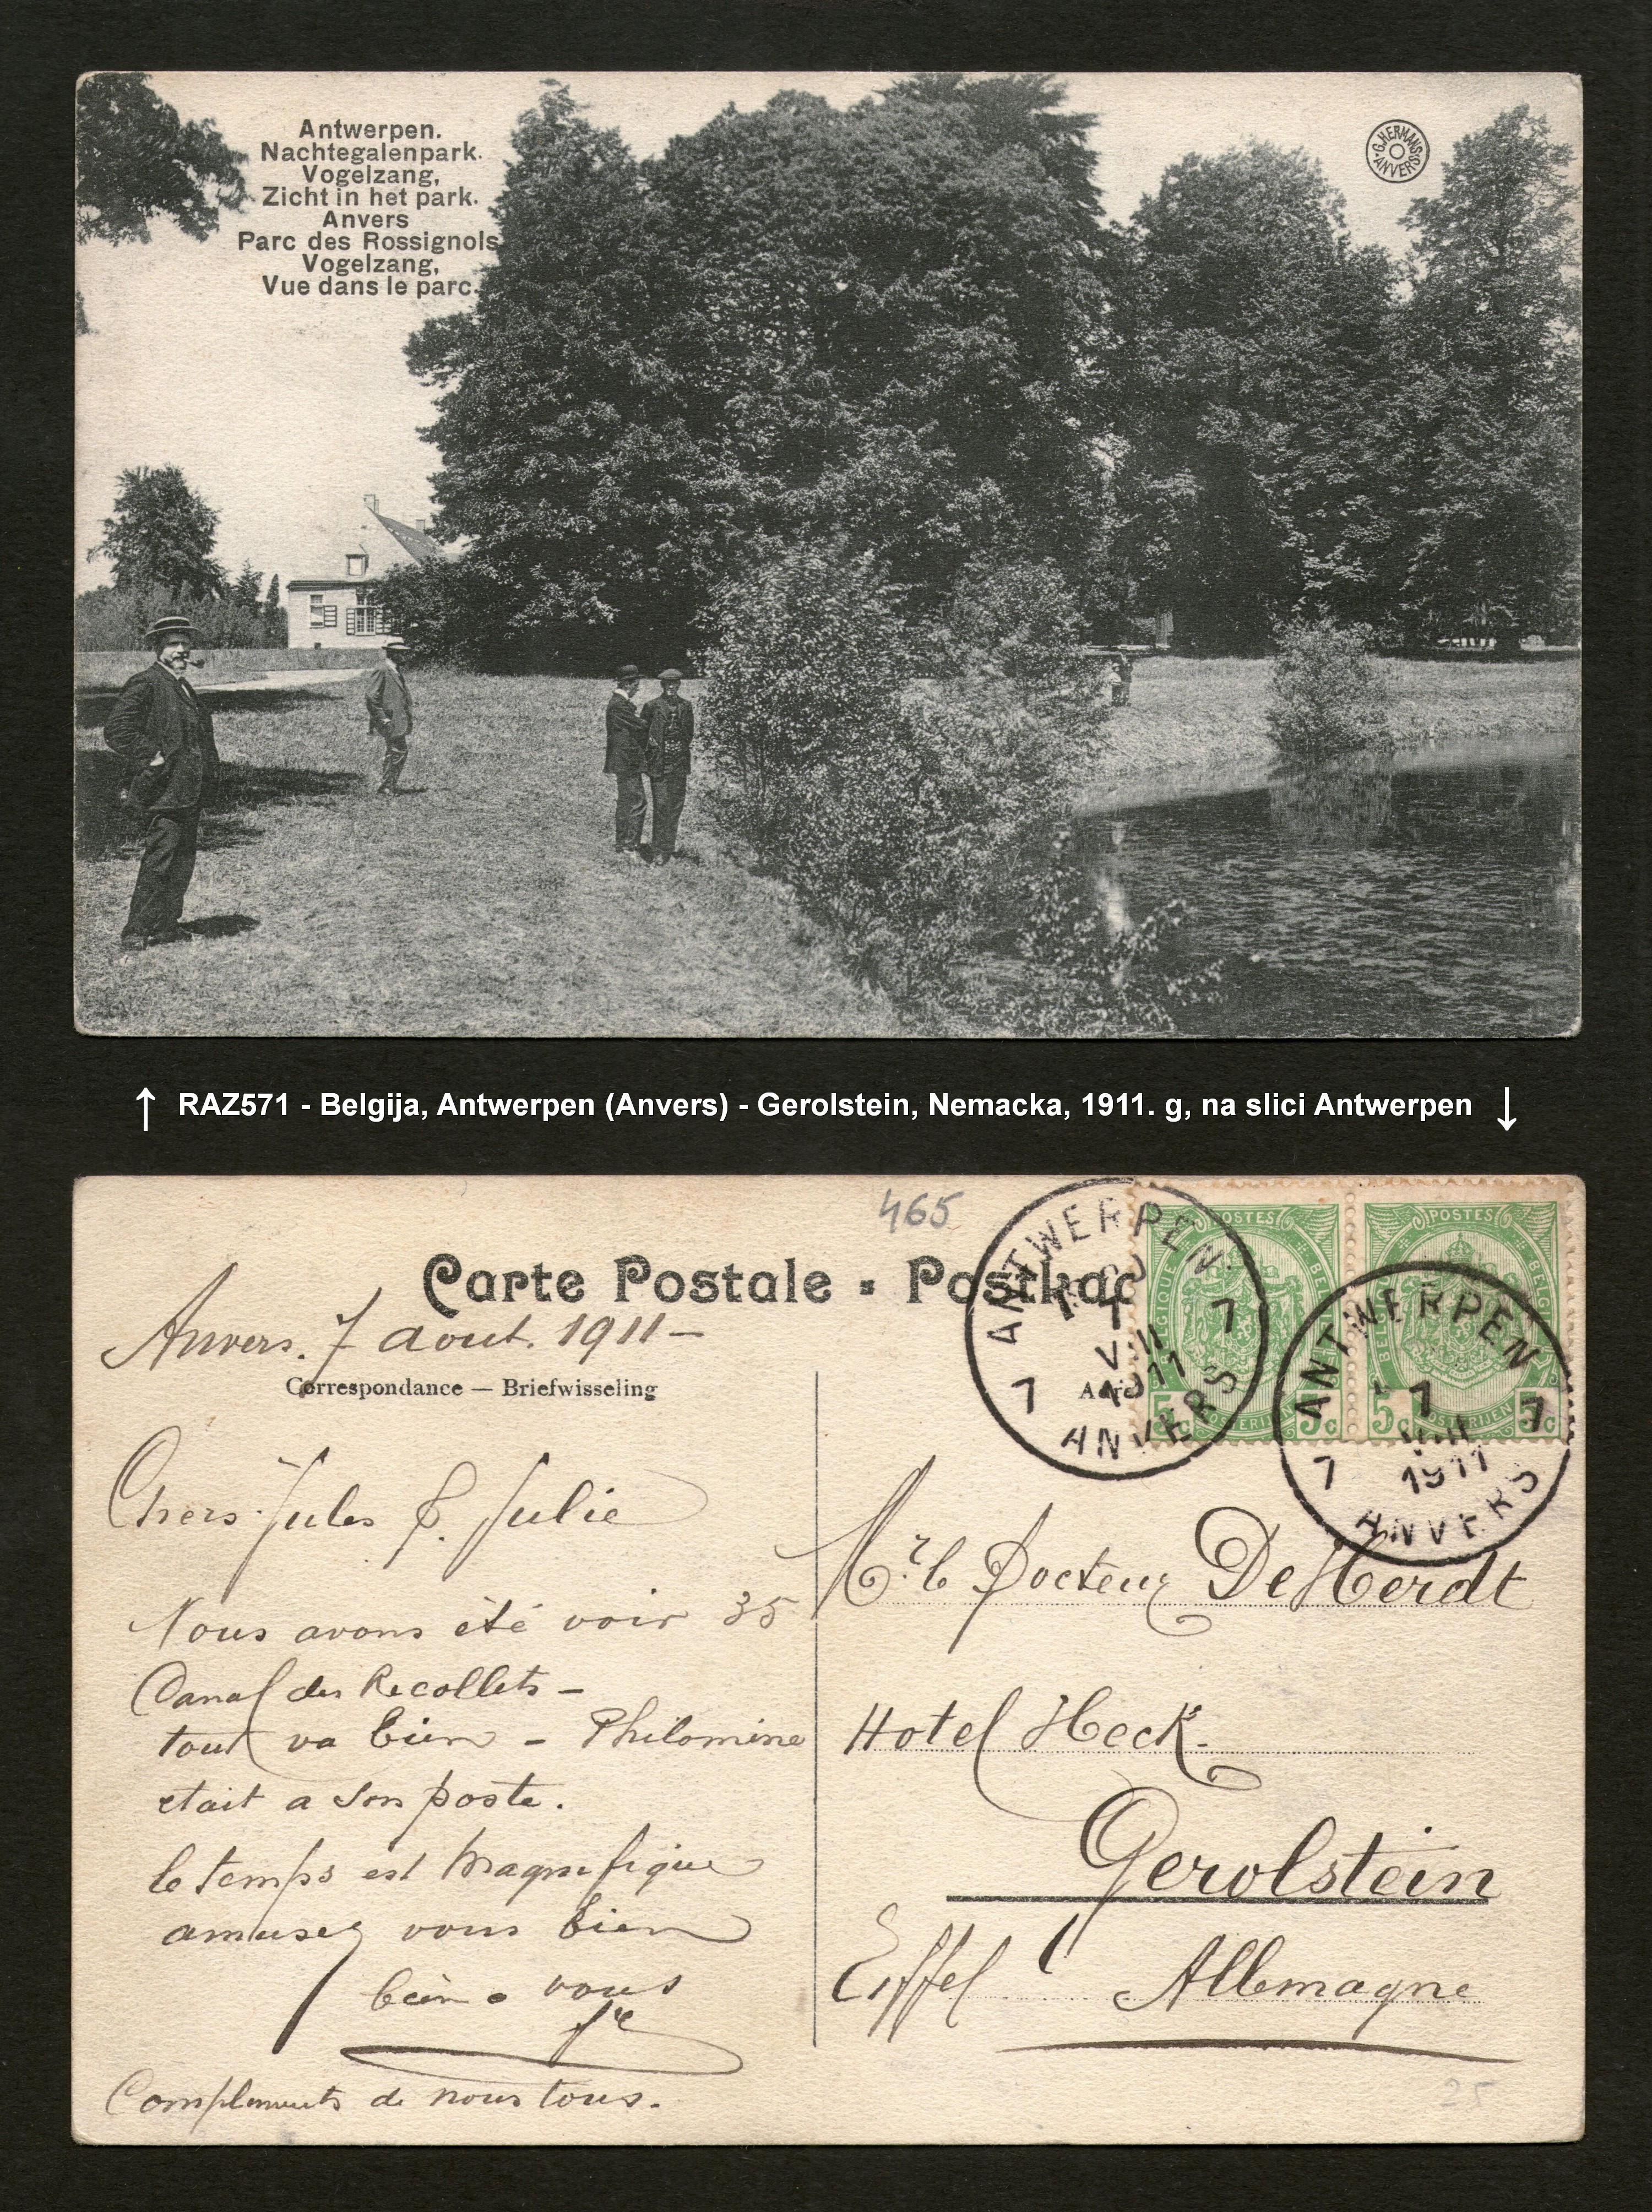 Antwerpen.
Nachtegalenpark.
Vogelzang,
Zicht in het park.
Anvers
Parc des Rossignols
Vogelzang,
Vue dans le parc.
G. HERMANS
ANVERS
↑ RAZ571 - Belgija, Antwerpen (Anvers) - Gerolstein, Nemacka, 1911. g, na slici Antwerpen ↓
465
Carte Postale - Postkaa
Anvers. 7 aout. 1911 -
Correspondance — Briefwisseling
Chers Jules & Julie
Nous avons été voir 35
Canal des Recollets -
tout va bien - Philomine
etait a son poste.
le temps est magnifique
amusez vous bien
bien a vous
Compliments de nous tous.
ANTWERPEN
7 7
VIII
1911
ANVERS
POSTES
BELGIQUE
BELGIË
POSTERIJEN
5c 5c
POSTES
BELGIQUE
BELGIË
POSTERIJEN
5c 5c
ANTWERPEN
7
7 7
VIII
1911
ANVERS
Adre
Mr. le Docteur De Herdt
Hotel Heck.
Gerolstein
Eiffel Allemagne
25